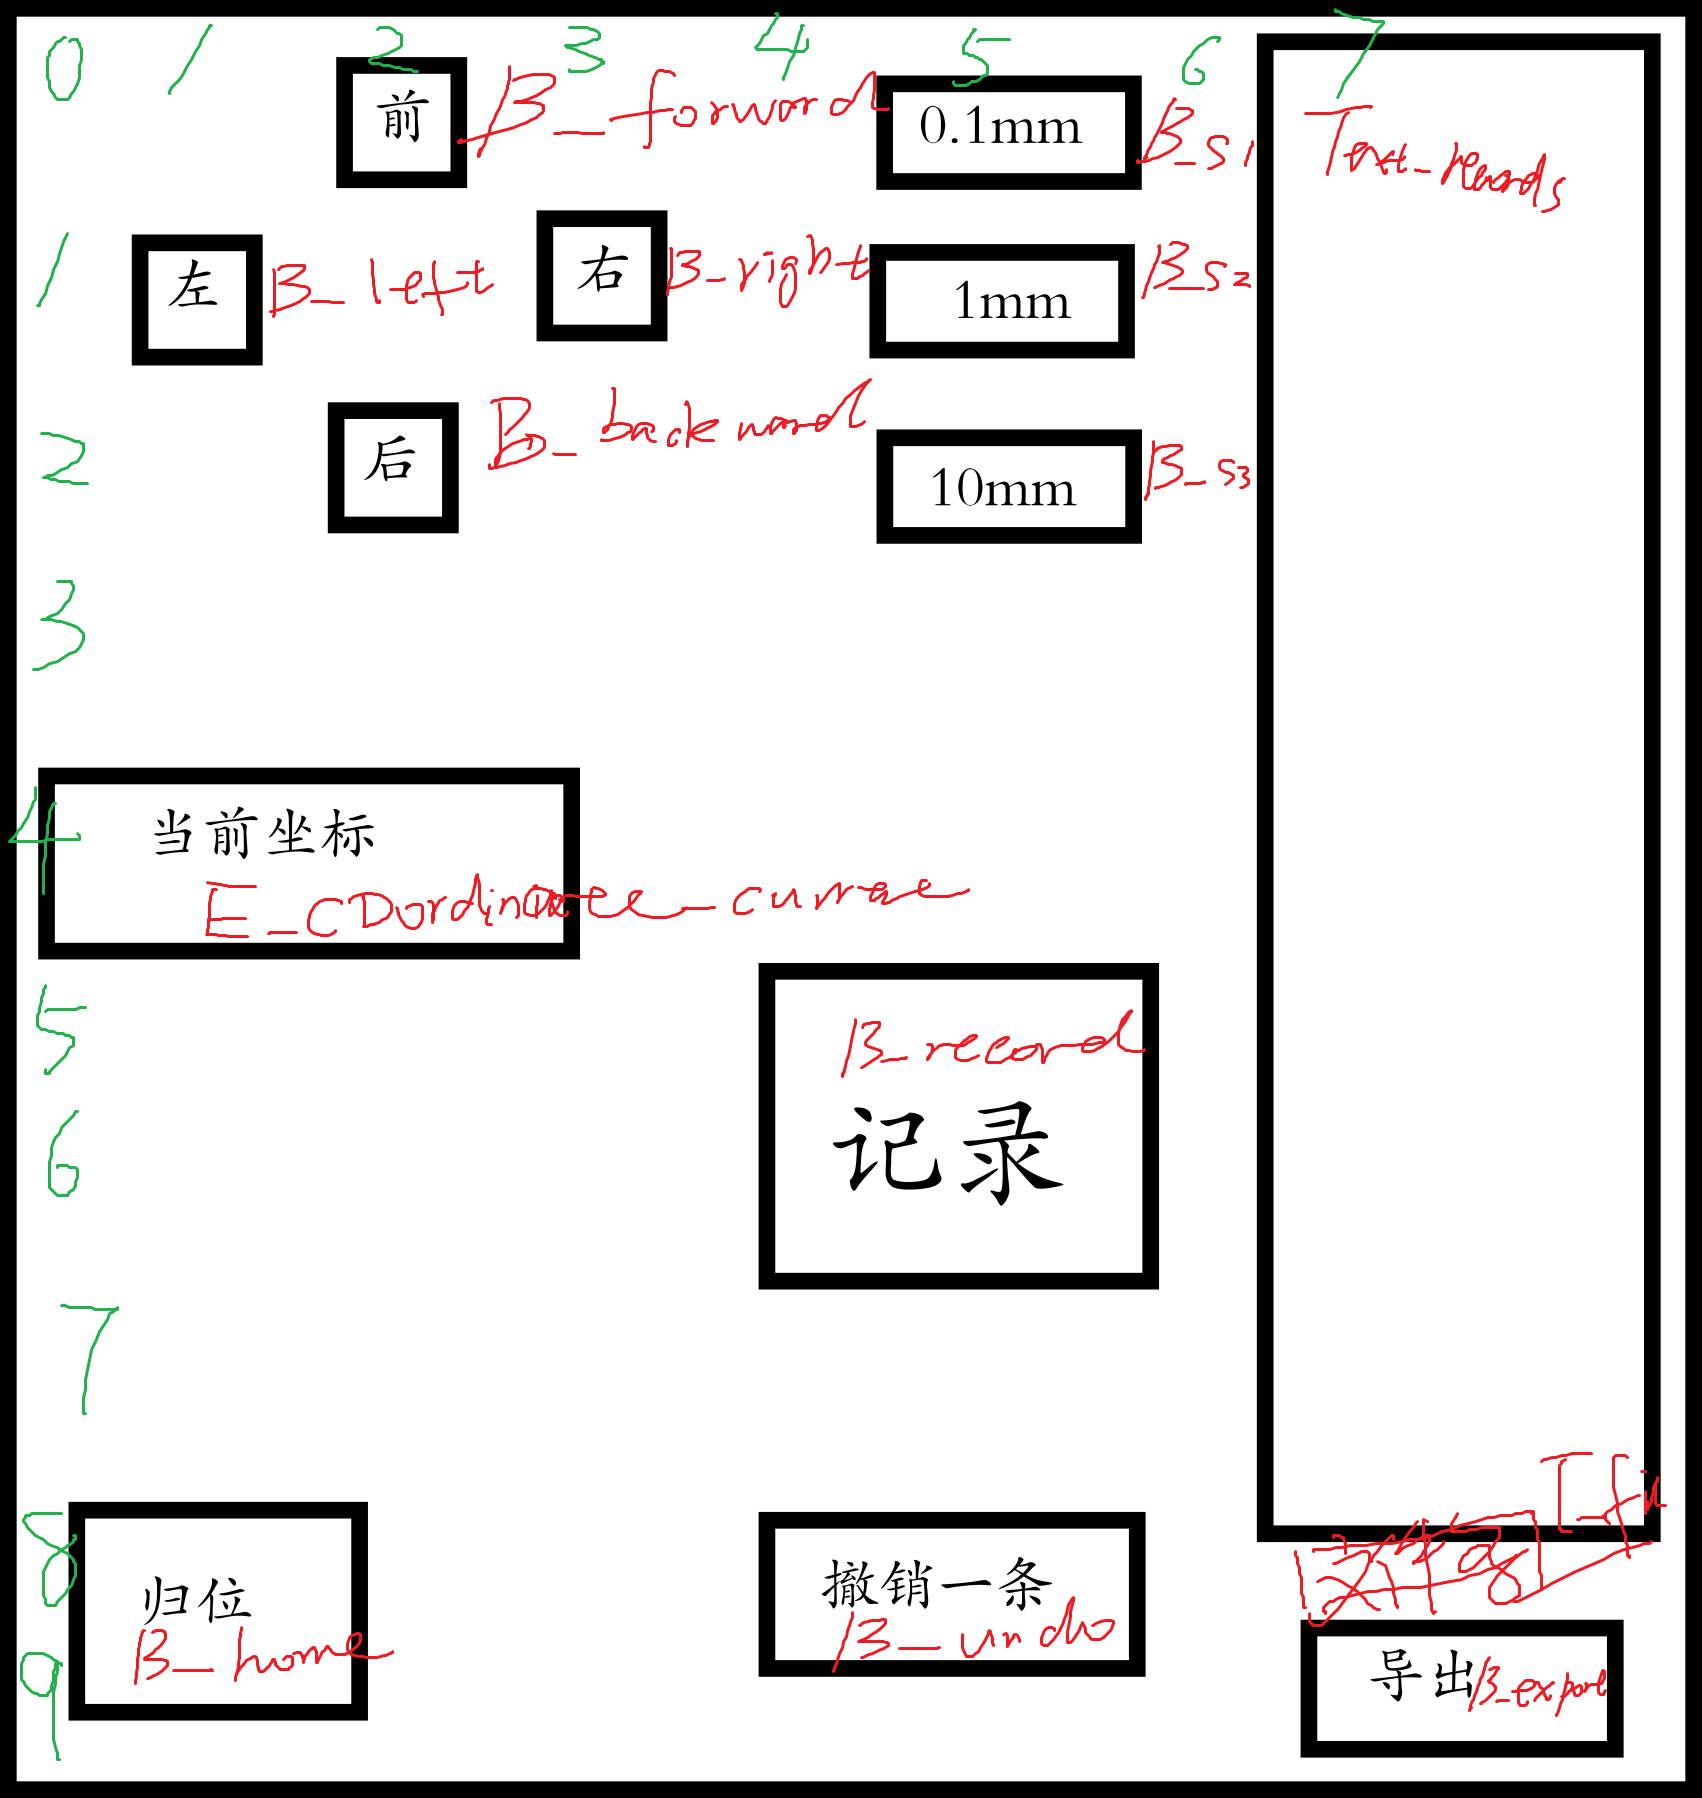 0 1 2 3 4 5 6 7
前 B_forward 0.1mm B_S1 Text_records
1 左 B_left 右 B_right 1mm B_S2
2 后 B_backward 10mm B_S3
3
4 当前坐标
E_coordinate_curr
5 B_record
6 记录
7
8 归位 撤销一条
B_home B_undo
9 导出 B_export